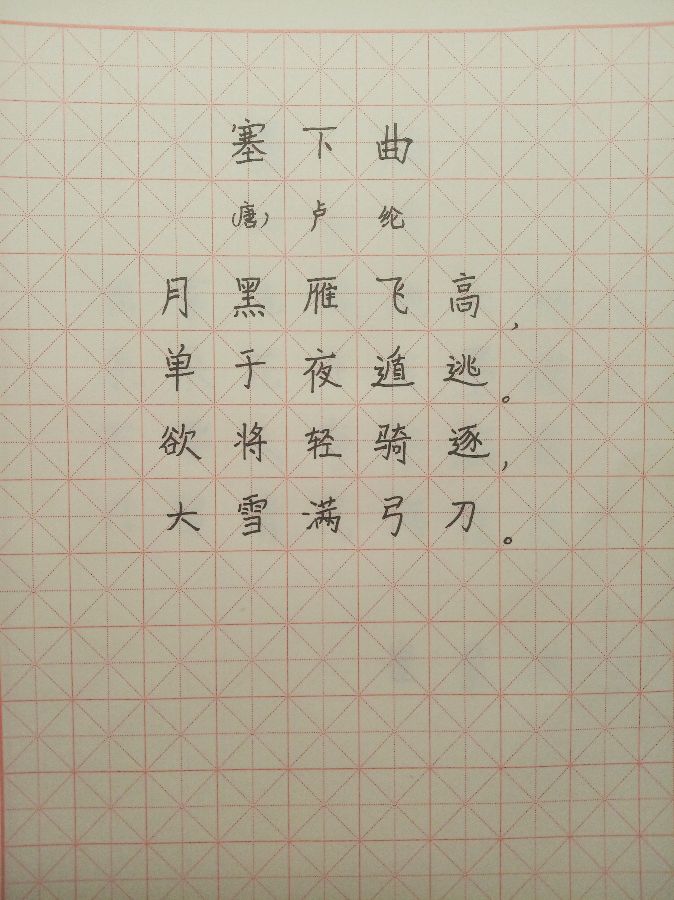 塞下曲
(唐)卢纶
月黑雁飞高,
单于夜遁逃。
欲将轻骑逐,
大雪满弓刀。